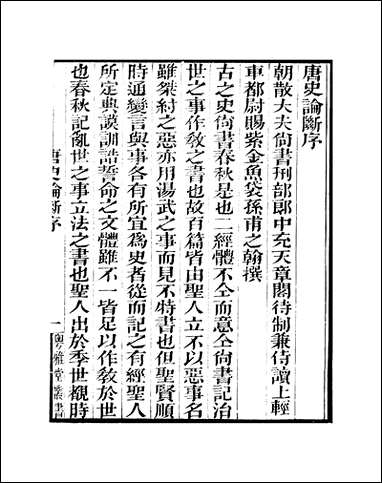 唐史論斷序
朝散大夫尚書刑部郎中充天章閣待制兼侍讀上輕
車都尉賜紫金魚袋孫甫之翰撰
古之史尚書春秋是也二經體不仝而意仝尚書記治
世之事作教之書也故百篇皆由聖人立不以惡事名
雖桀紂之惡亦用湯武之事而見不特書也但聖賢順
時通變言與事各有所宜爲史者從而記之有經聖人
所定典謨訓誥誓命之文體雖不一皆足以作教於世
也春秋記亂世之事立法之書也聖人出於季世覩時
唐史論斷序
一
粵雅堂叢書